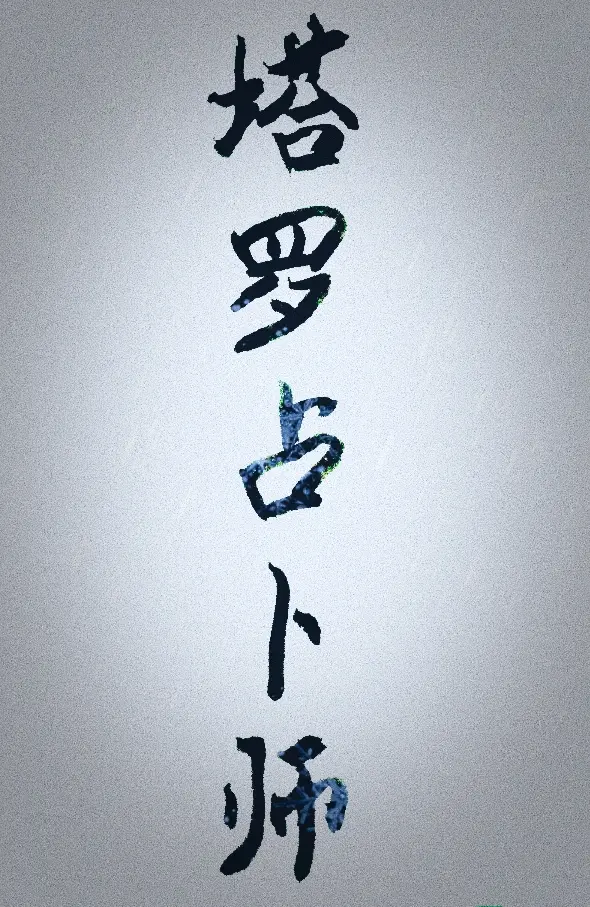 塔罗占卜师